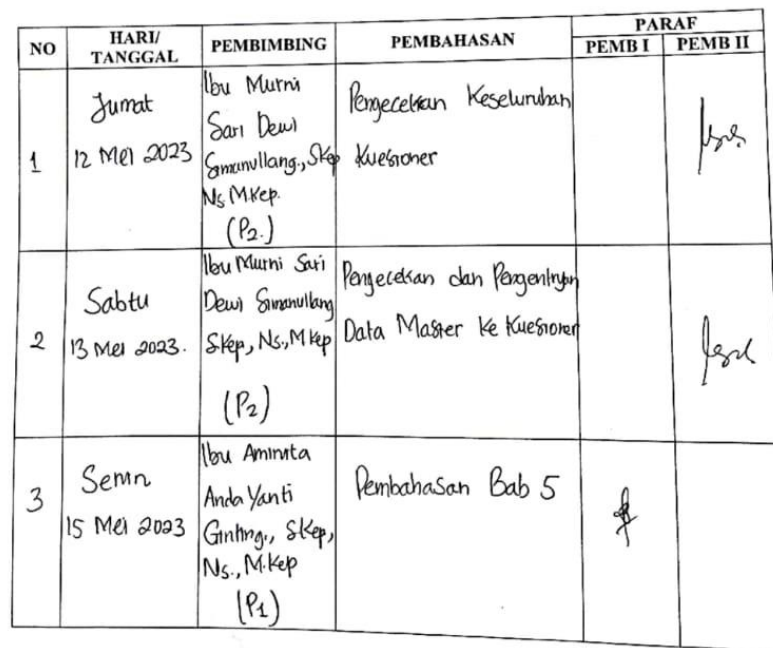 NO HARI/ TANGGAL PEMBIMBING PEMBAHASAN PARAF
PEMB I PEMB II
1
Jumat
12 Mei 2023
Ibu Murni
Sari Dewi
Simanullang., SKep
Ns M.Kep.
(P2.)
Pengecekan Keseluruhan
Kuesioner
2
Sabtu
13 Mei 2023.
Ibu Murni Sari
Dewi Simanullang
SKep, Ns., M Kep
(P2)
Pengecekan dan Pengentryan
Data Master Ke Kuesioner
3
Senin
15 Mei 2023
Ibu Amnita
Anda Yanti
Ginting., SKep,
Ns., M.Kep
(P1)
Pembahasan Bab 5